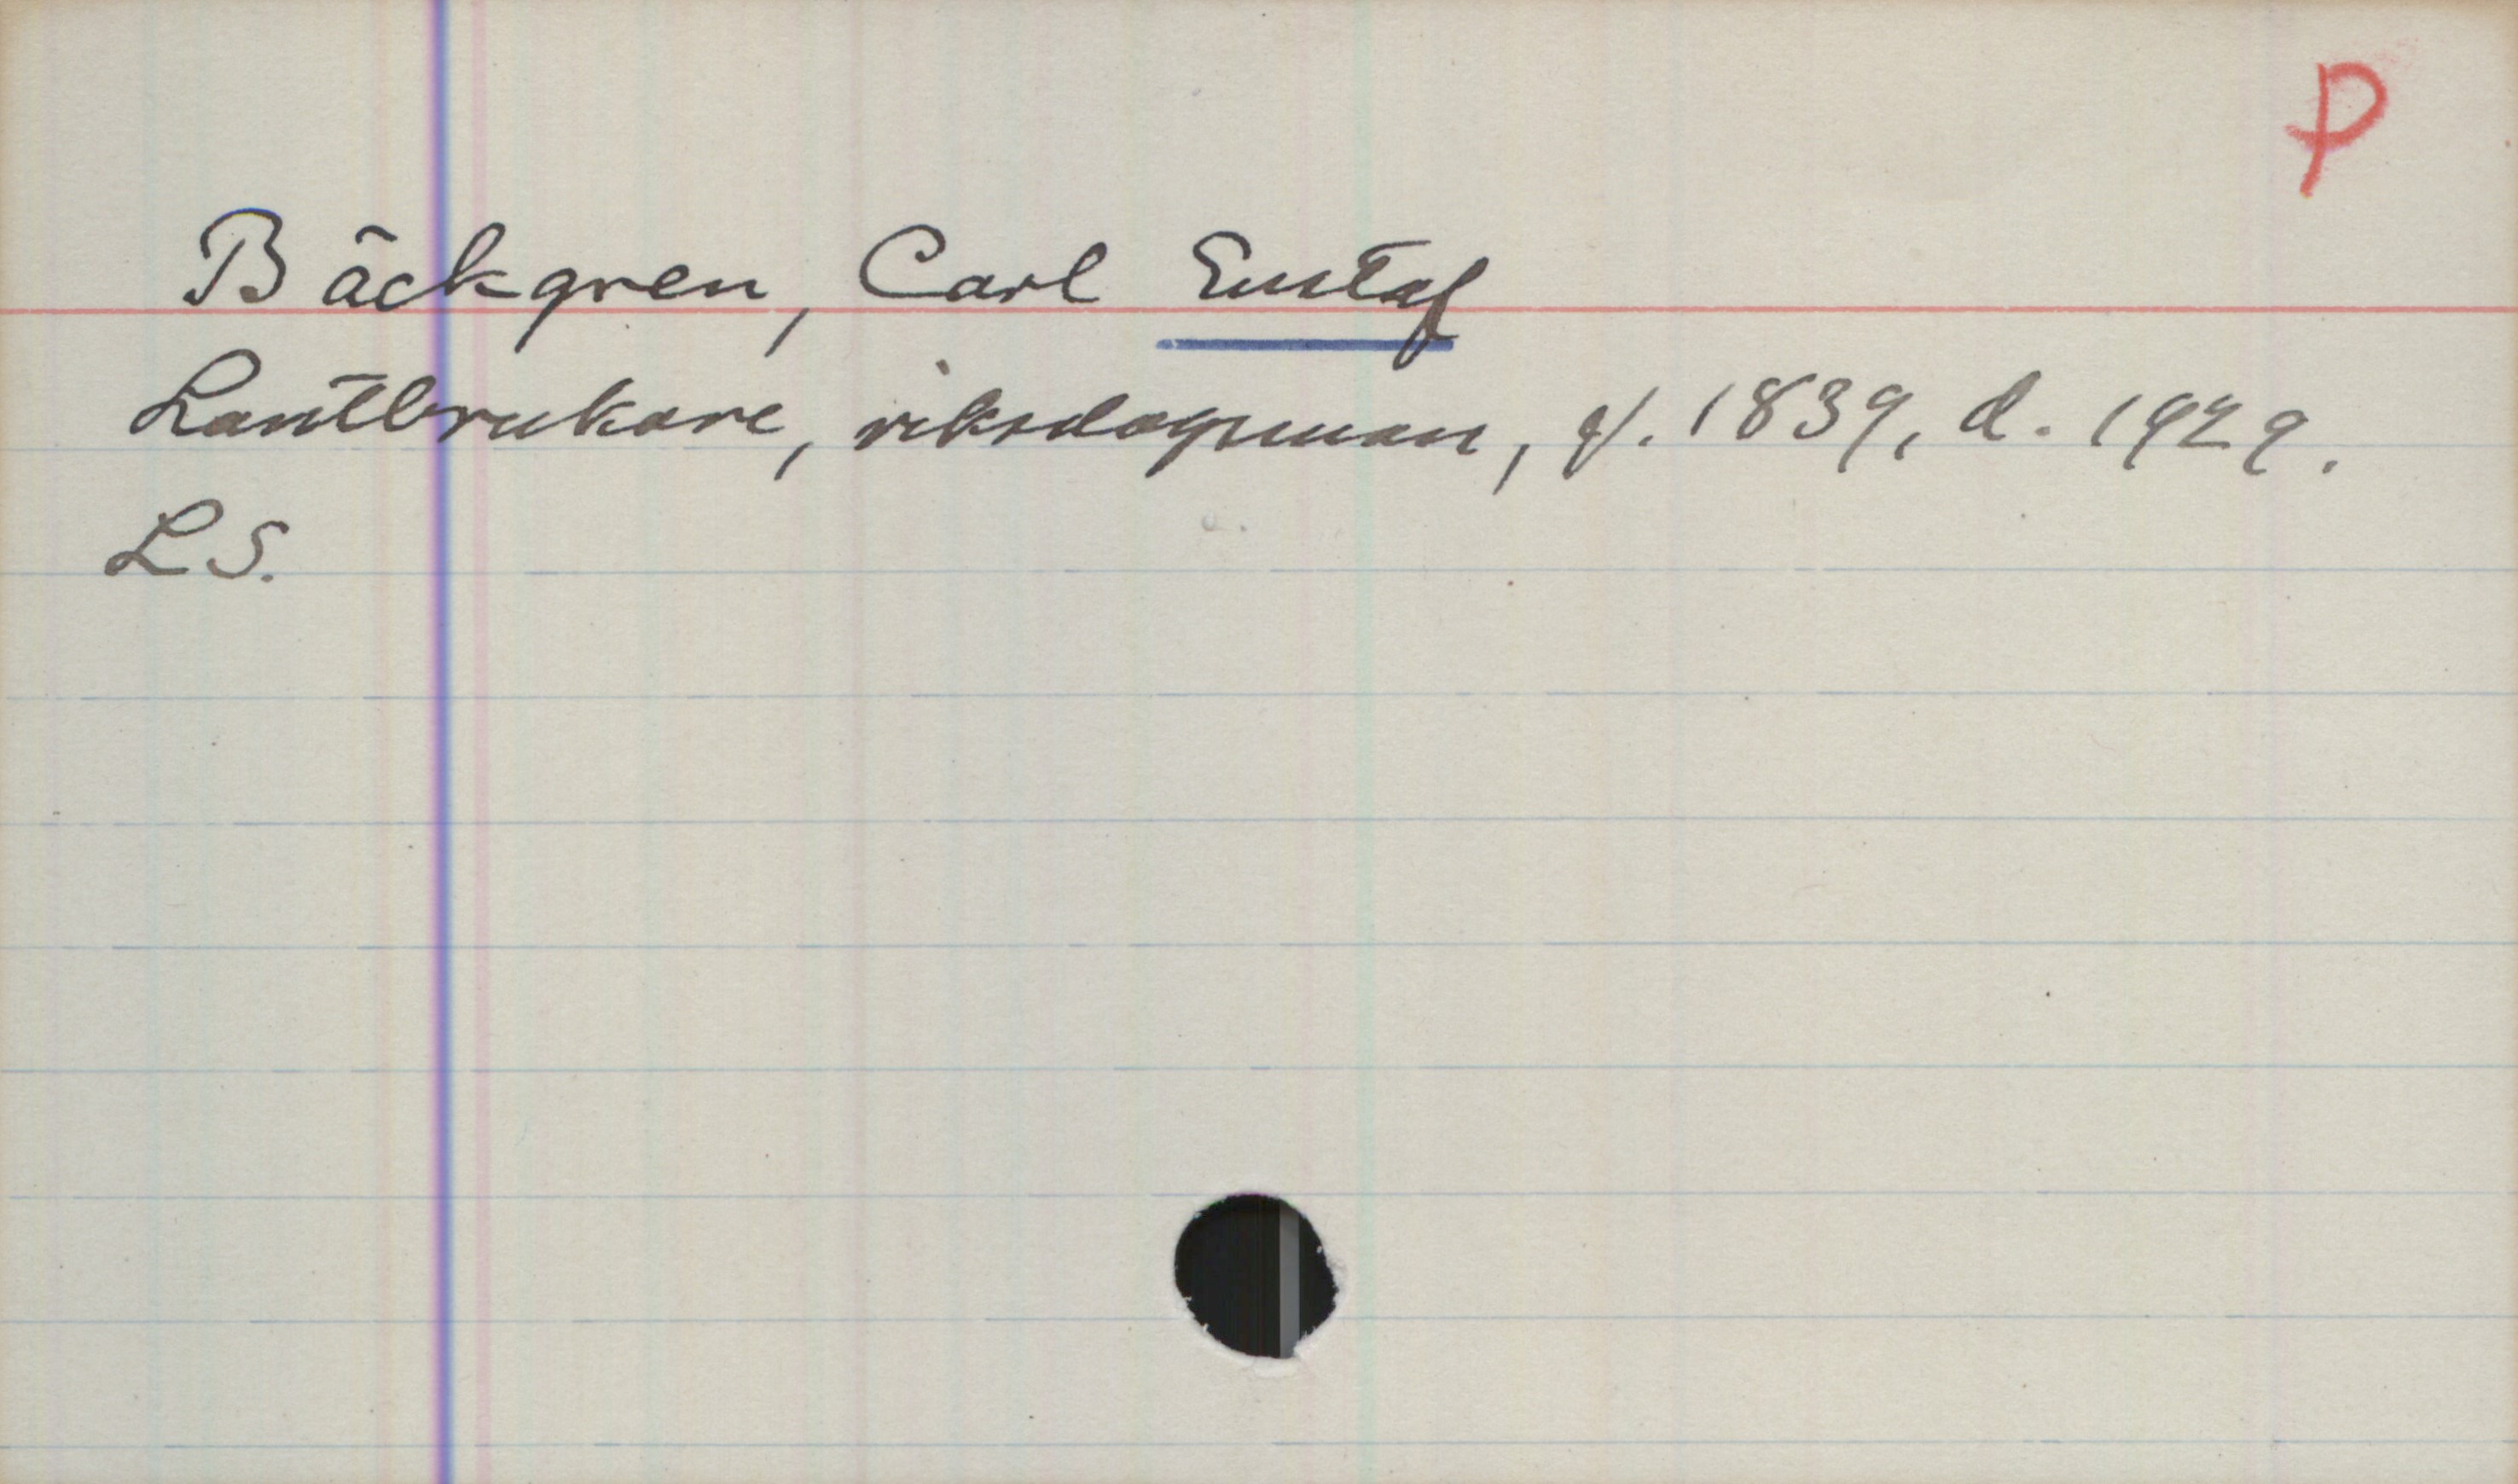 P
Bäckgren, Carl Gustaf
Lantbrukare, riksdagsman, f. 1839, d. 1929.
LS.